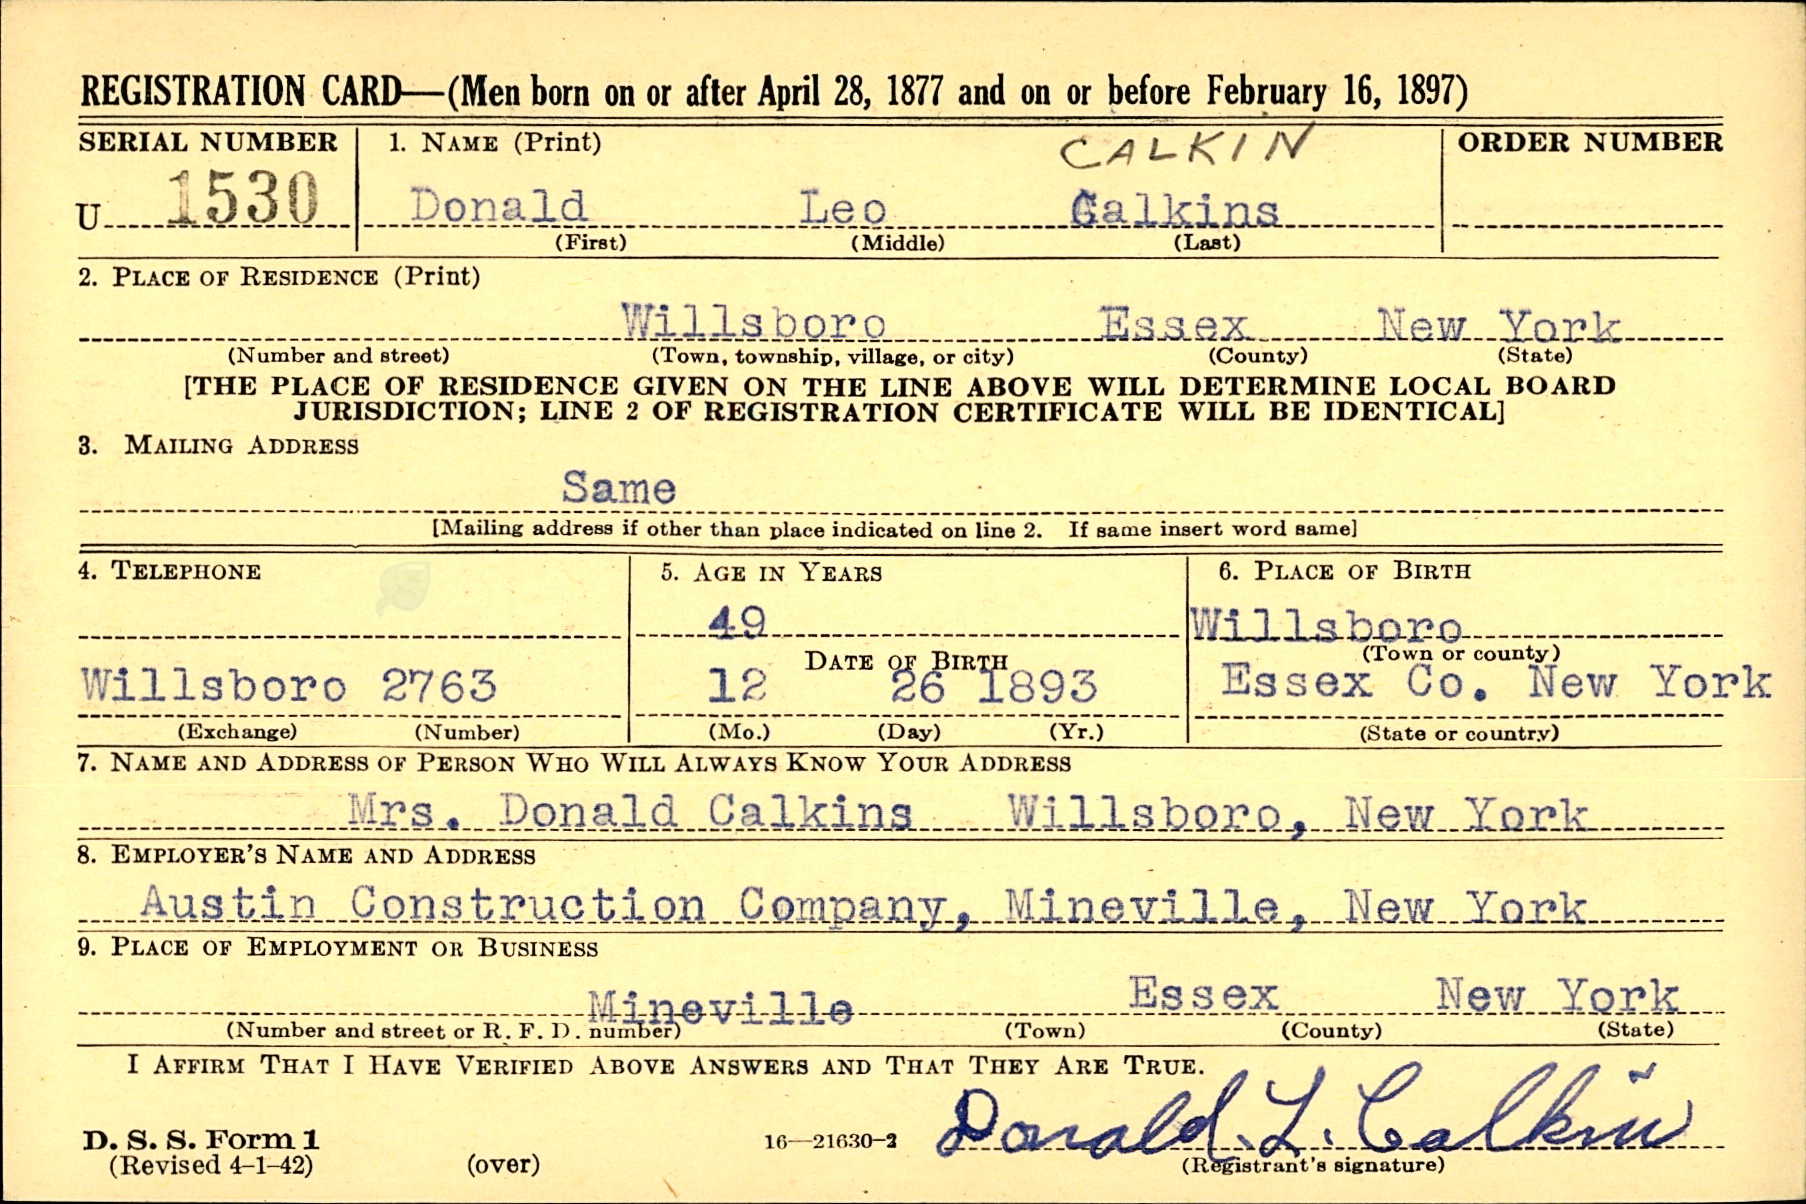 REGISTRATION CARD—(Men born on or after April 28, 1877 and on or before February 16, 1897)
SERIAL NUMBER 1. NAME (Print) CALKIN ORDER NUMBER
U 1530 Donald Leo Calkins
(First) (Middle) (Last)
2. PLACE OF RESIDENCE (Print)
Willsboro Essex New York
(Number and street) (Town, township, village, or city) (County) (State)
[THE PLACE OF RESIDENCE GIVEN ON THE LINE ABOVE WILL DETERMINE LOCAL BOARD
JURISDICTION; LINE 2 OF REGISTRATION CERTIFICATE WILL BE IDENTICAL]
3. MAILING ADDRESS
Same
[Mailing address if other than place indicated on line 2. If same insert word same]
4. TELEPHONE 5. AGE IN YEARS 6. PLACE OF BIRTH
49 Willsboro
DATE OF BIRTH (Town or county)
Willsboro 2763 12 26 1893 Essex Co. New York
(Exchange) (Number) (Mo.) (Day) (Yr.) (State or country)
7. NAME AND ADDRESS OF PERSON WHO WILL ALWAYS KNOW YOUR ADDRESS
Mrs. Donald Calkins Willsboro, New York
8. EMPLOYER'S NAME AND ADDRESS
Austin Construction Company, Mineville, New York
9. PLACE OF EMPLOYMENT OR BUSINESS
Mineville Essex New York
(Number and street or R. F. D. number) (Town) (County) (State)
I AFFIRM THAT I HAVE VERIFIED ABOVE ANSWERS AND THAT THEY ARE TRUE.
Donald. L. Calkin
D. S. S. Form 1 16—21630-2
(Revised 4-1-42) (over) (Registrant's signature)